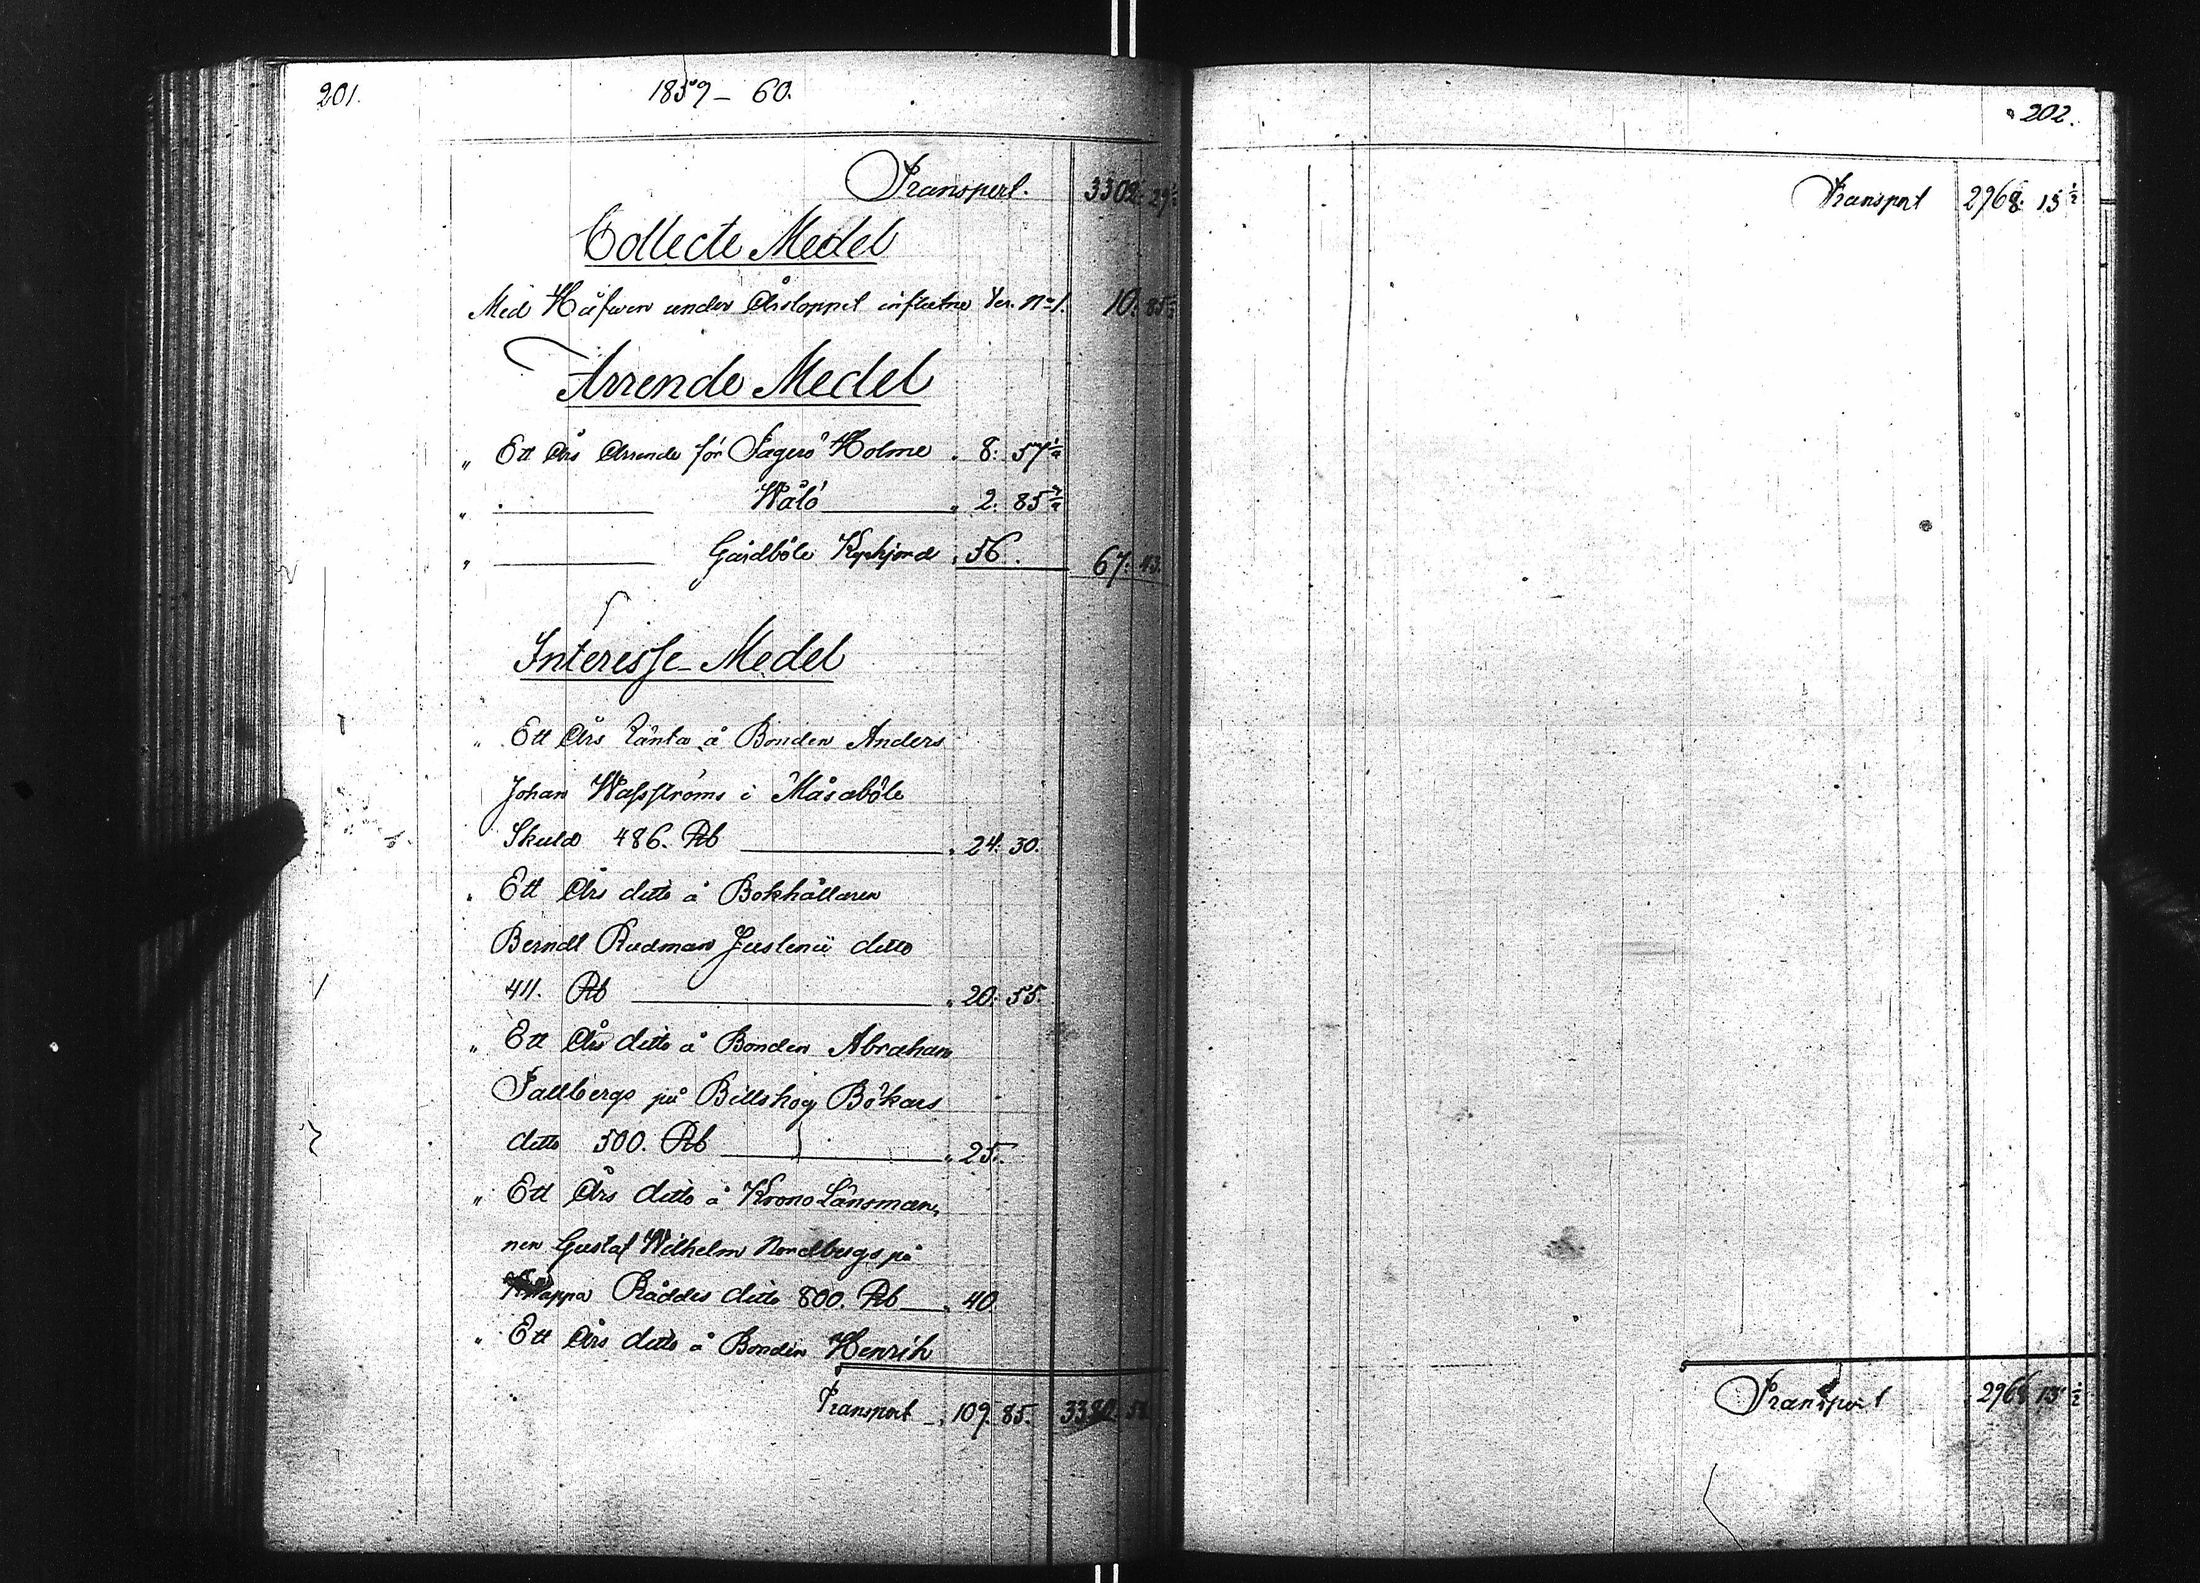 201.
1859 - 60.
Transport. 3302: 29
Collecte Medel
Med Håfwen under Årsloppet influtne Ver. No 1. 10. 85
Arrende Medel
" Ett Års Arrende för Fagerö Holme . 8: 57 1/2
" Wålö " 2: 85
" Gårdböle Kyrkjord . 56. 67: 43.
Interesse Medel
" Ett Års Ränta å Bonden Anders
Johan Wassströms i Måsaböle
Skuld 486. Rb " 24. 30.
" Ett Års ditto å Bokhållaren
Berndt Rudman Juslenii ditto
411. Rb " 20: 55.
" Ett Års ditto å Bonden Abraham
Fallbergs på Billskog Bökars
ditto 500. Rb " 25.
" Ett Års ditto å Krono Länsman,
nen Gustaf Wilhelm Nordbergs på
Räddis ditto 800. Rb " 40
" Ett Års ditto å Bonden Henrik
Transport " 109. 85.
202.
Transport 2968: 13 1/2
Transport 2968 13 1/2